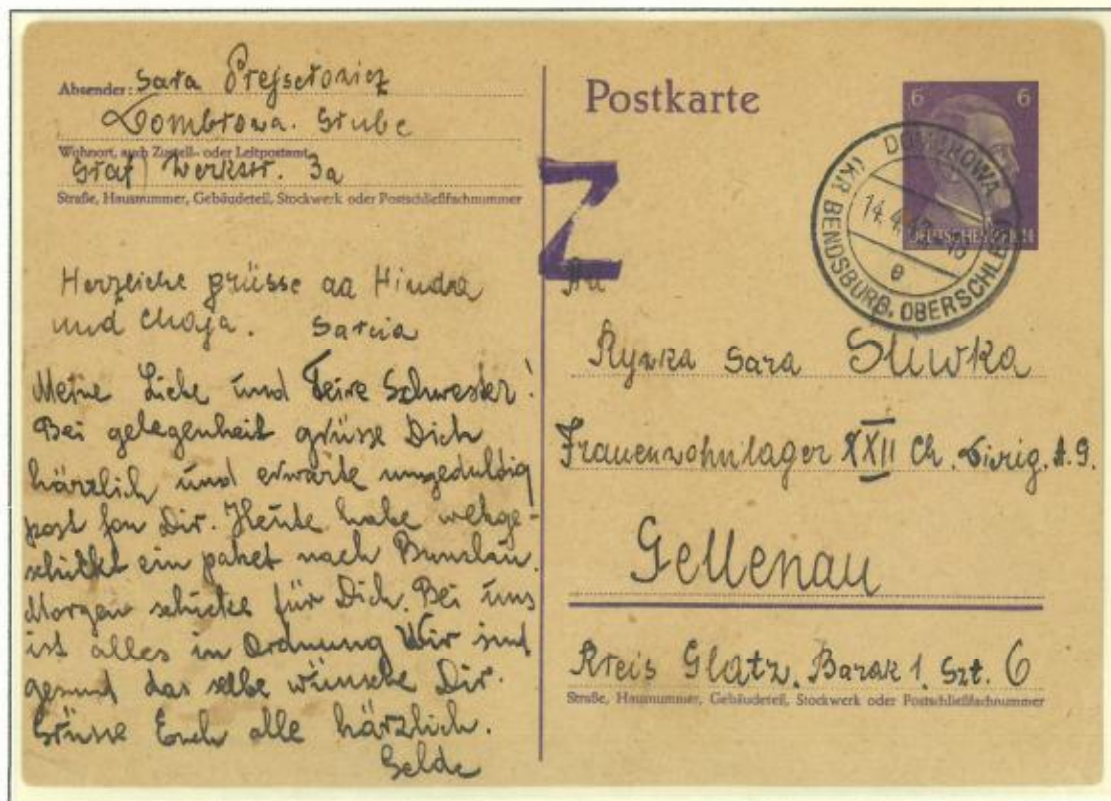 Absender: Sara Prejserowicz
Dombrowa. Grube
Wohnort, auch Zustell- oder Leitpostamt
Graf Werkstr. 3a
Straße, Hausnummer, Gebäudeteil, Stockwerk oder Postschließfachnummer
Herzliche grüsse aa Hindra
und Chaja. Sarcia
Meine Liebe und Teire Schwester!
Bei gelegenheit grüsse Dich
härzlich und erwarte umgeduldig
post fon Dir. Heute habe wekge-
schikt ein paket nach Bunzlau.
Morgen schicke für Dich. Bei uns
ist alles in Ordnung Wir sind
gesund das selbe wünsche Dir.
Grüsse Euch alle härzlich.
Gelde
Postkarte
6 6
DEUTSCHES REICH
DOMBROWA
(KR BENDSBURG, OBERSCHLES
14.4.
e
Z
An
Rywka Sara Sliwka
Frauenwohnlager XXII Ch. Dirig. A.G.
Gellenau
Kreis Glatz. Barak 1. Szt. 6
Straße, Hausnummer, Gebäudeteil, Stockwerk oder Postschließfachnummer